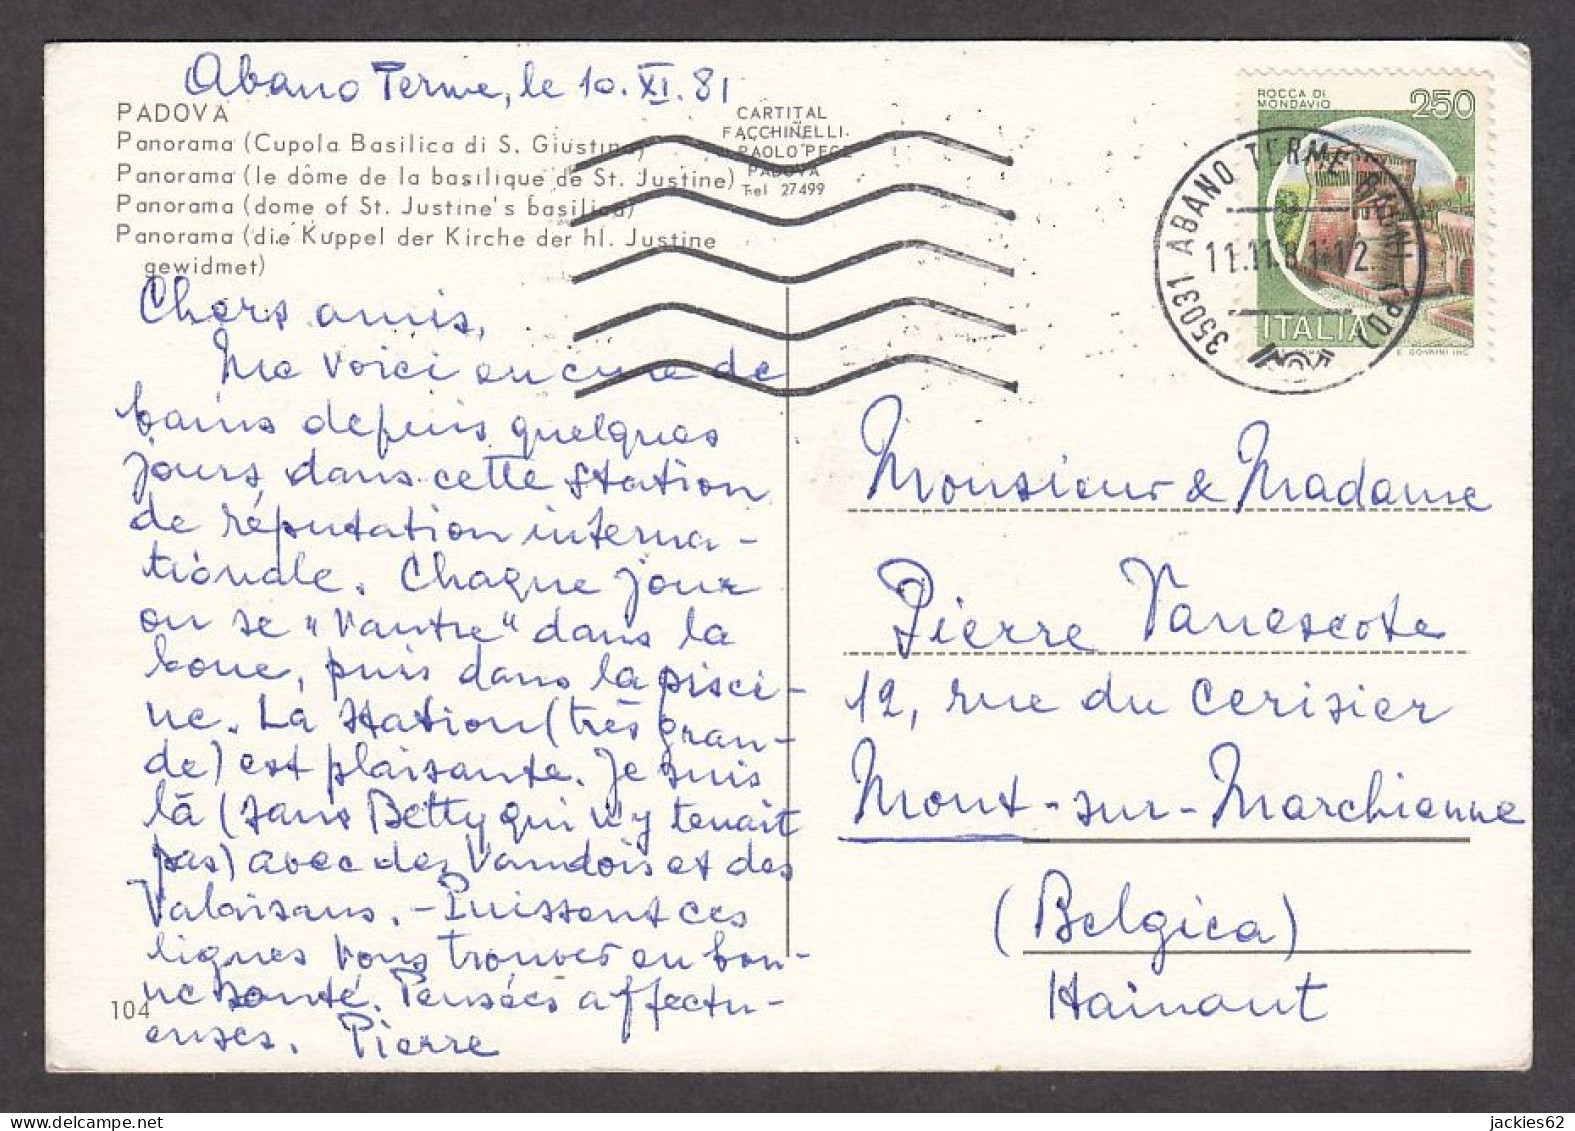 Abano Terme, le 10.XI.81
PADOVA
Panorama (Cupola Basilica di S. Giustina)
Panorama (le dôme de la basilique de St. Justine)
Panorama (dome of St. Justine's basilica)
Panorama (die Kuppel der Kirche der hl. Justine
gewidmet)
CARTITAL
FACCHINELLI
PAOLO
PADOVA
Tel 27499
ROCCA DI
MONDAVIO
250
ITALIA
35031 ABANO TERME BAGNI (PD)
11.11.81-12
Chers amis,
Me voici en cure de
bains depuis quelques
jours, dans cette station
de réputation interna-
tionale. Chaque jour
on se "vautre" dans la
boue, puis dans la pisci-
ne. La station (très gran-
de) est plaisante. Je suis
là (sans Betty qui n'y tenait
pas) avec des Vaudois et des
Valaisans. - Puissent ces
lignes vous trouver en bon-
ne santé. Pensées affectu-
euses. Pierre
104
Monsieur & Madame
Pierre Vanescote
12, rue du Cerisier
Mont-sur-Marchienne
(Belgica)
Hainaut
jackies62